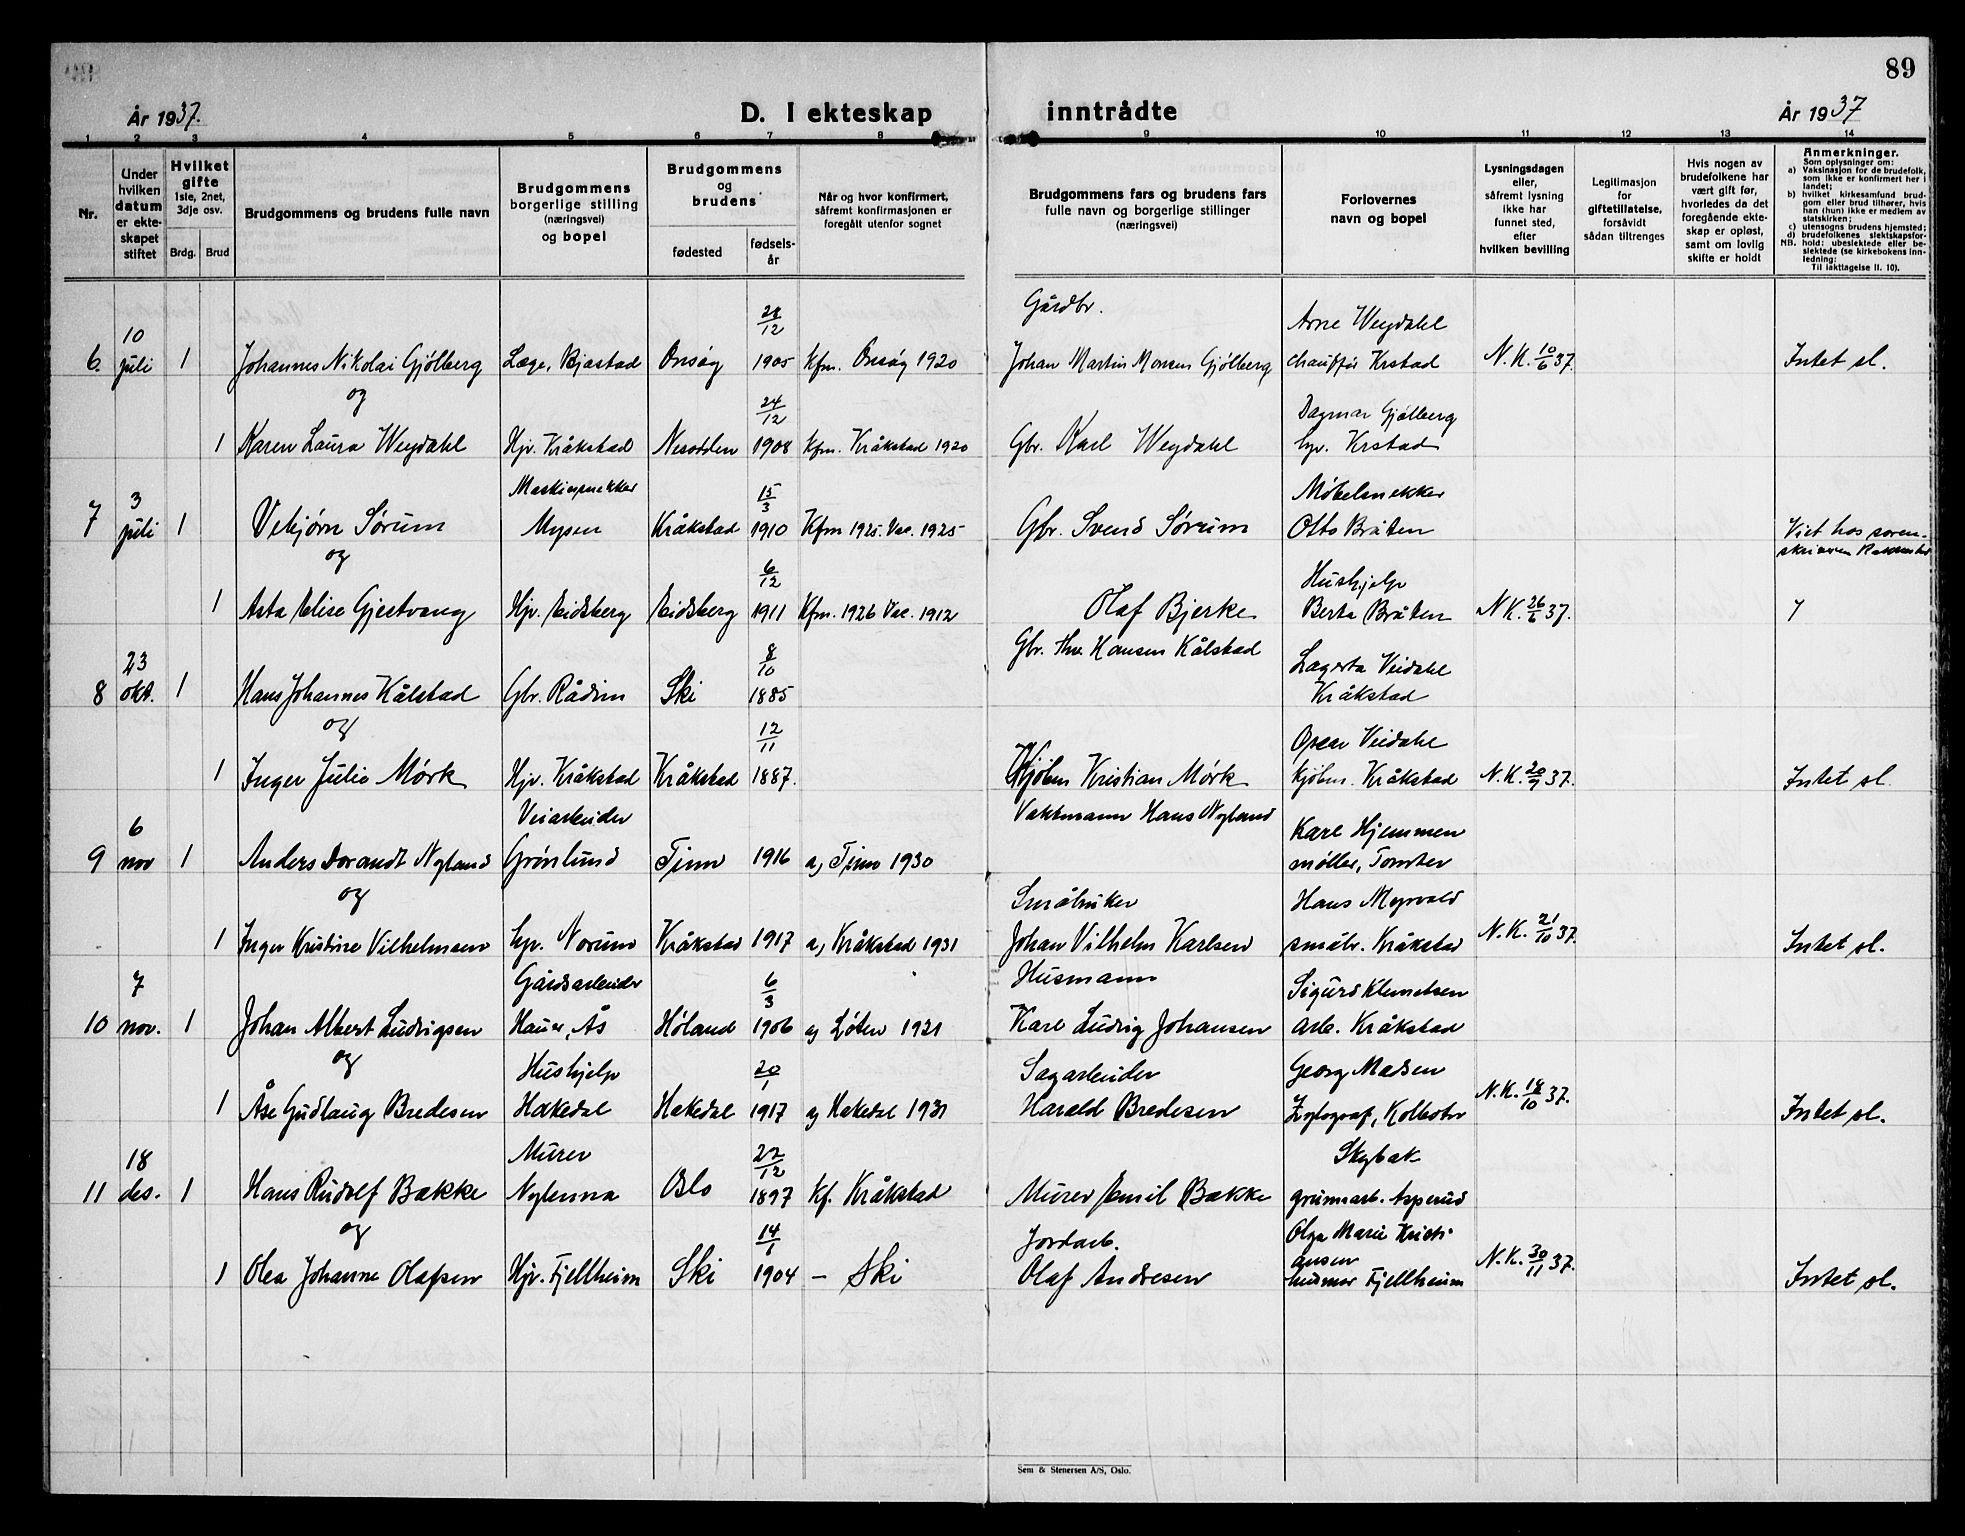 89
År 1937.
D. I ekteskap inntrådte
År 1937
1 2 3 4 5 6 7 8 9 10 11 12 13 14
Nr.
Under hvilken datum er ekteskapet stiftet
Hvilket gifte 1ste, 2net, 3dje osv.
Brdg. Brud
Brudgommens og brudens fulle navn
Brudgommens borgerlige stilling (næringsvei) og bopel
Brudgommens og brudens
fødested
fødselsår
Når og hvor konfirmert, såfremt konfirmasjonen er foregått utenfor sognet
Brudgommens fars og brudens fars fulle navn og borgerlige stillinger (næringsvei)
Forlovernes navn og bopel
Lysningsdagen eller, såfremt lysning ikke har funnet sted, efter hvilken bevilling
Legitimasjon for giftetillatelse, forsåvidt sådan tiltrenges
Hvis nogen av brudefolkene har vært gift før, hvorledes da det foregående ekteskap er opløst, samt om lovlig skifte er holdt
Anmerkninger.
Som oplysninger om:
a) Vaksinasjon for de brudefolk, som ikke er konfirmert her i landet;
b) hvilket kirkesamfund brudgom eller brud tilhører, hvis han (hun) ikke er medlem av statskirken;
c) utensogns brudens hjemsted;
d) brudefolkenes slektskapsforhold: ubeslektede eller beslektede (se kirkebokens innledning:
NB. Til iakttagelse II. 10).
6. 10 juli 1 Johannes Nikolai Gjølberg Læge, Bjastad Onsøy 28/12 1905 Kfm. Onsøy 1920 Gårdbr. Johan Martin Monsen Gjølberg Arne Weydahl chauffør Krstad N.K. 10/6 37. Intet sl.
og
1 Karen Laura Weydahl Hjv. Kråkstad Nesodden 24/12 1908 Kfm. Kråkstad 1920 Gbr. Karl Weydahl Dagmar Gjølberg Krstad
7 3 juli 1 Vebjørn Sørum Maskinsnekker Mysen Kråkstad 15/3 1910 Kfm 1925. Vac. 1925 Gbr. Svend Sørum Møbelsnekker Otto Bråten Viet hos sorenskriveren
og
1 Asta Elise Gjestvang Hjv. Eidsberg Eidsberg 6/12 1911 Kfm. 1926 Vac. 1912 Olaf Bjerke Hushjelp Berta Bråten N.K. 26/6 37.
8 23 okt. 1 Hans Johannes Kålstad Gbr. Rådim Ski 8/10 1885 Gbr. Thv. Hansen Kålstad Lagerta Veidahl Kråkstad
og
1 Inger Julie Mørk Hjv. Kråkstad Kråkstad 12/11 1887. Kjøbm Kristian Mørk Oscar Veidahl kjøbm. Kråkstad N.K. 20/9 37. Intet sl.
9 6 nov 1 Anders Dorandt Nyland Veiarbeider Grønlund Tinn 1916 a) Tinn 1930 Vaktmann Hans Nyland Kare Hjemmen møller, Tomter
og
1 Inger Kristine Vilhelmsen hjv. Norum Kråkstad 1917 a) Kråkstad 1931 Småbruker Johan Vilhelm Karlsen Hans Myrvold småbr. Kråkstad N.K. 21/10 37. Intet sl.
10 7 nov. 1 Johan Albert Ludvigsen Gårdsarbeider Haug, Ås Høland 6/3 1906 a) Løten 1921 Husmann Karl Ludvig Johansen Sigurd Klemetsen arb. Kråkstad
og
1 Åse Gudlaug Bredesen Hushjelp Hakedal Hakedal 20/1 1917 a) Hakedal 1931 Sagarbeider Harald Bredesen Georg Madsen Zylograf, Kolbotn N.K. 18/10 37. Intet sl.
11 18 des. 1 Hans Rudolf Bække Murer Nylenna Oslo 22/12 1897 Kf. Kråkstad Murer Emil Bække Skybak grunnarb. Asperud
og
1 Olea Johanne Olafsen Hjv. Fjellheim Ski 14/1 1904 – Ski Jordarb. Olaf Andresen Olga Marie Kristiansen husmor Fjellheim N.K. 30/11 37. Intet sl.
Sem & Stenersen A/S, Oslo.